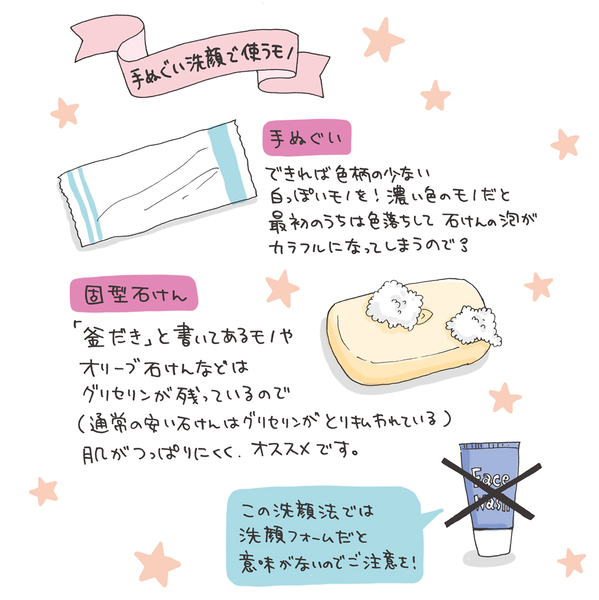 手ぬぐい洗顔で使うモノ
手ぬぐい
できれば色柄の少ない
白っぽいモノを！濃い色のモノだと
最初のうちは色落ちして石けんの泡が
カラフルになってしまうので？
固型石けん
「釜だき」と書いてあるモノや
オリーブ石けんなどは
グリセリンが残っているので
（通常の安い石けんはグリセリンがとりはらわれている）
肌がつっぱりにくく、オススメです。
Face
Wash
この洗顔法では
洗顔フォームだと
意味がないのでご注意を！